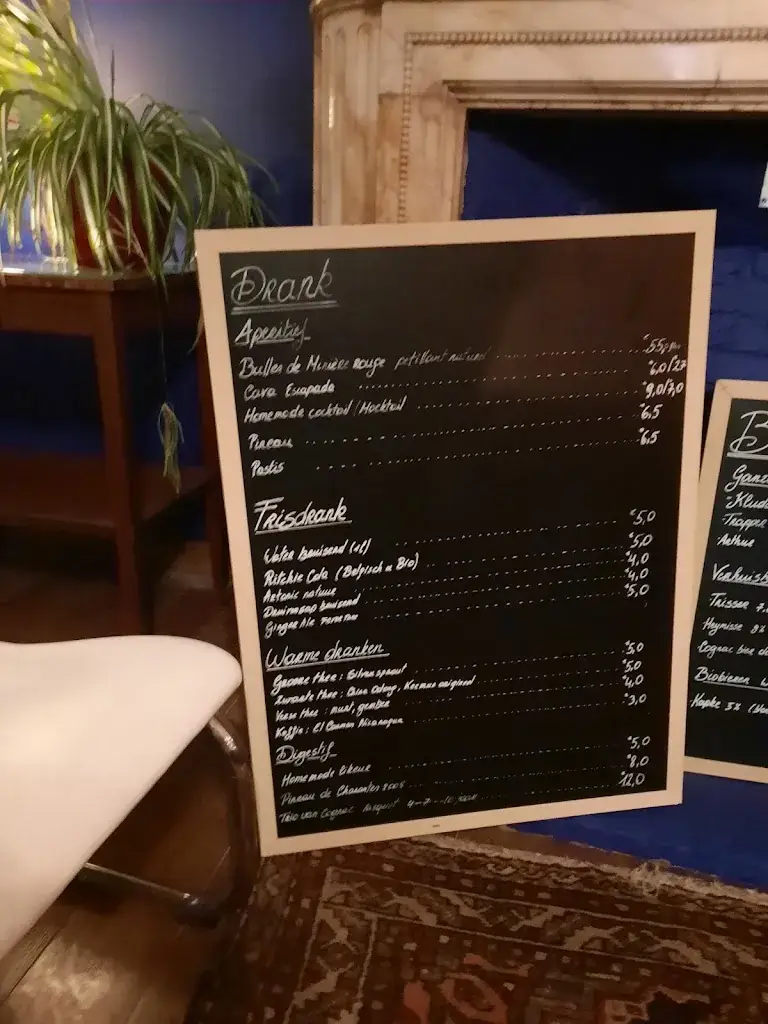 Drank
Aperitief
Bulles de Minière rouge petillant naturel €55
Cava Escapada €6,0/27
Homemade cocktail / Mocktail €9,0/7,0
Pineau €6,5
Pastis €6,5
Frisdrank
Water bruisend (1l) €5,0
Ritchie Cola (Belgisch & Bio) €5,0
nature €4,0
Druivensap bruisend €4,0
Ginger Ale €5,0
Warme dranken
Groene thee: Silver sprout €5,0
Zwarte thee: China Oolong, €5,0
Verse thee: munt, gember €4,0
Koffie: El Carmen Nicaragua €3,0
Digestif
Homemade likeur €5,0
Pineau de Charentes 2005 €8,0
Trio van Cognac 4-7-10 jaar €12,0
B
Ganz
Trappe
Aethur
Verhuis
Trisser 7.
Heynisse 8%
Cognac bier
Biobieren
Kapke 5%